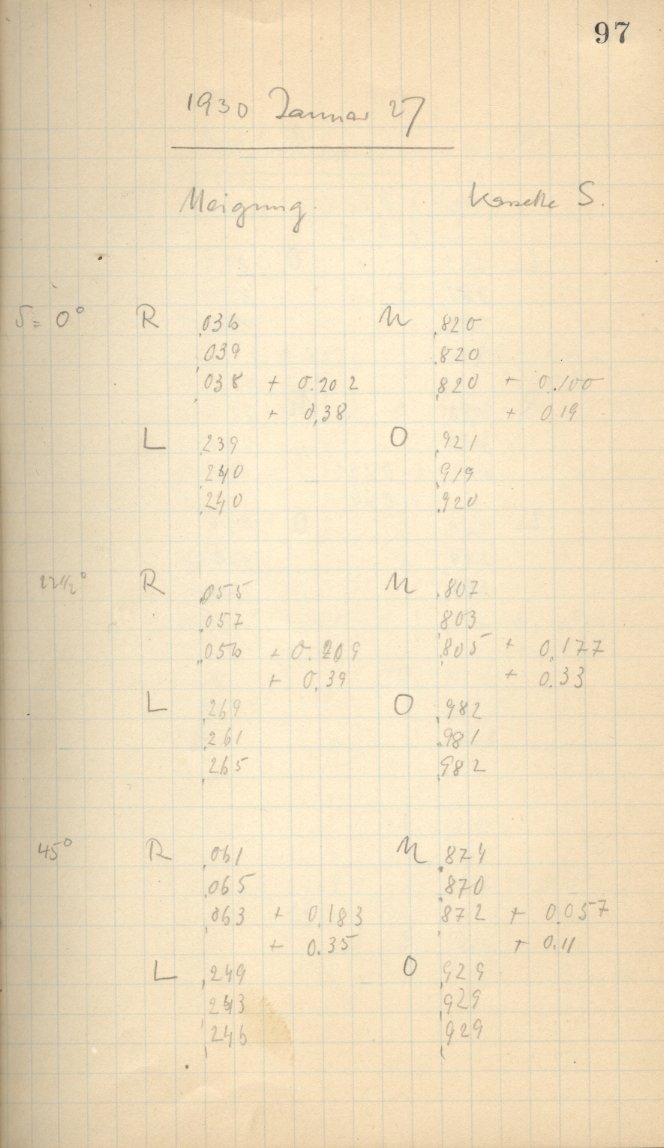 97
1930 Januar 27
Neigung. Kassette S.
δ = 0° R .036 U .820
.039 .820
.038 + 0.202 .820 + 0.100
+ 0.38 + 0.19
L .239 O .921
.240 .919
.240 .920
22½° R .055 U .807
.057 .803
.056 + 0.209 .805 + 0.177
+ 0.39 + 0.33
L .269 O .982
.261 .981
.265 .982
45° R .061 U .874
.065 .870
.063 + 0.183 .872 + 0.057
+ 0.35 + 0.11
L .249 O .929
.243 .929
.246 .929